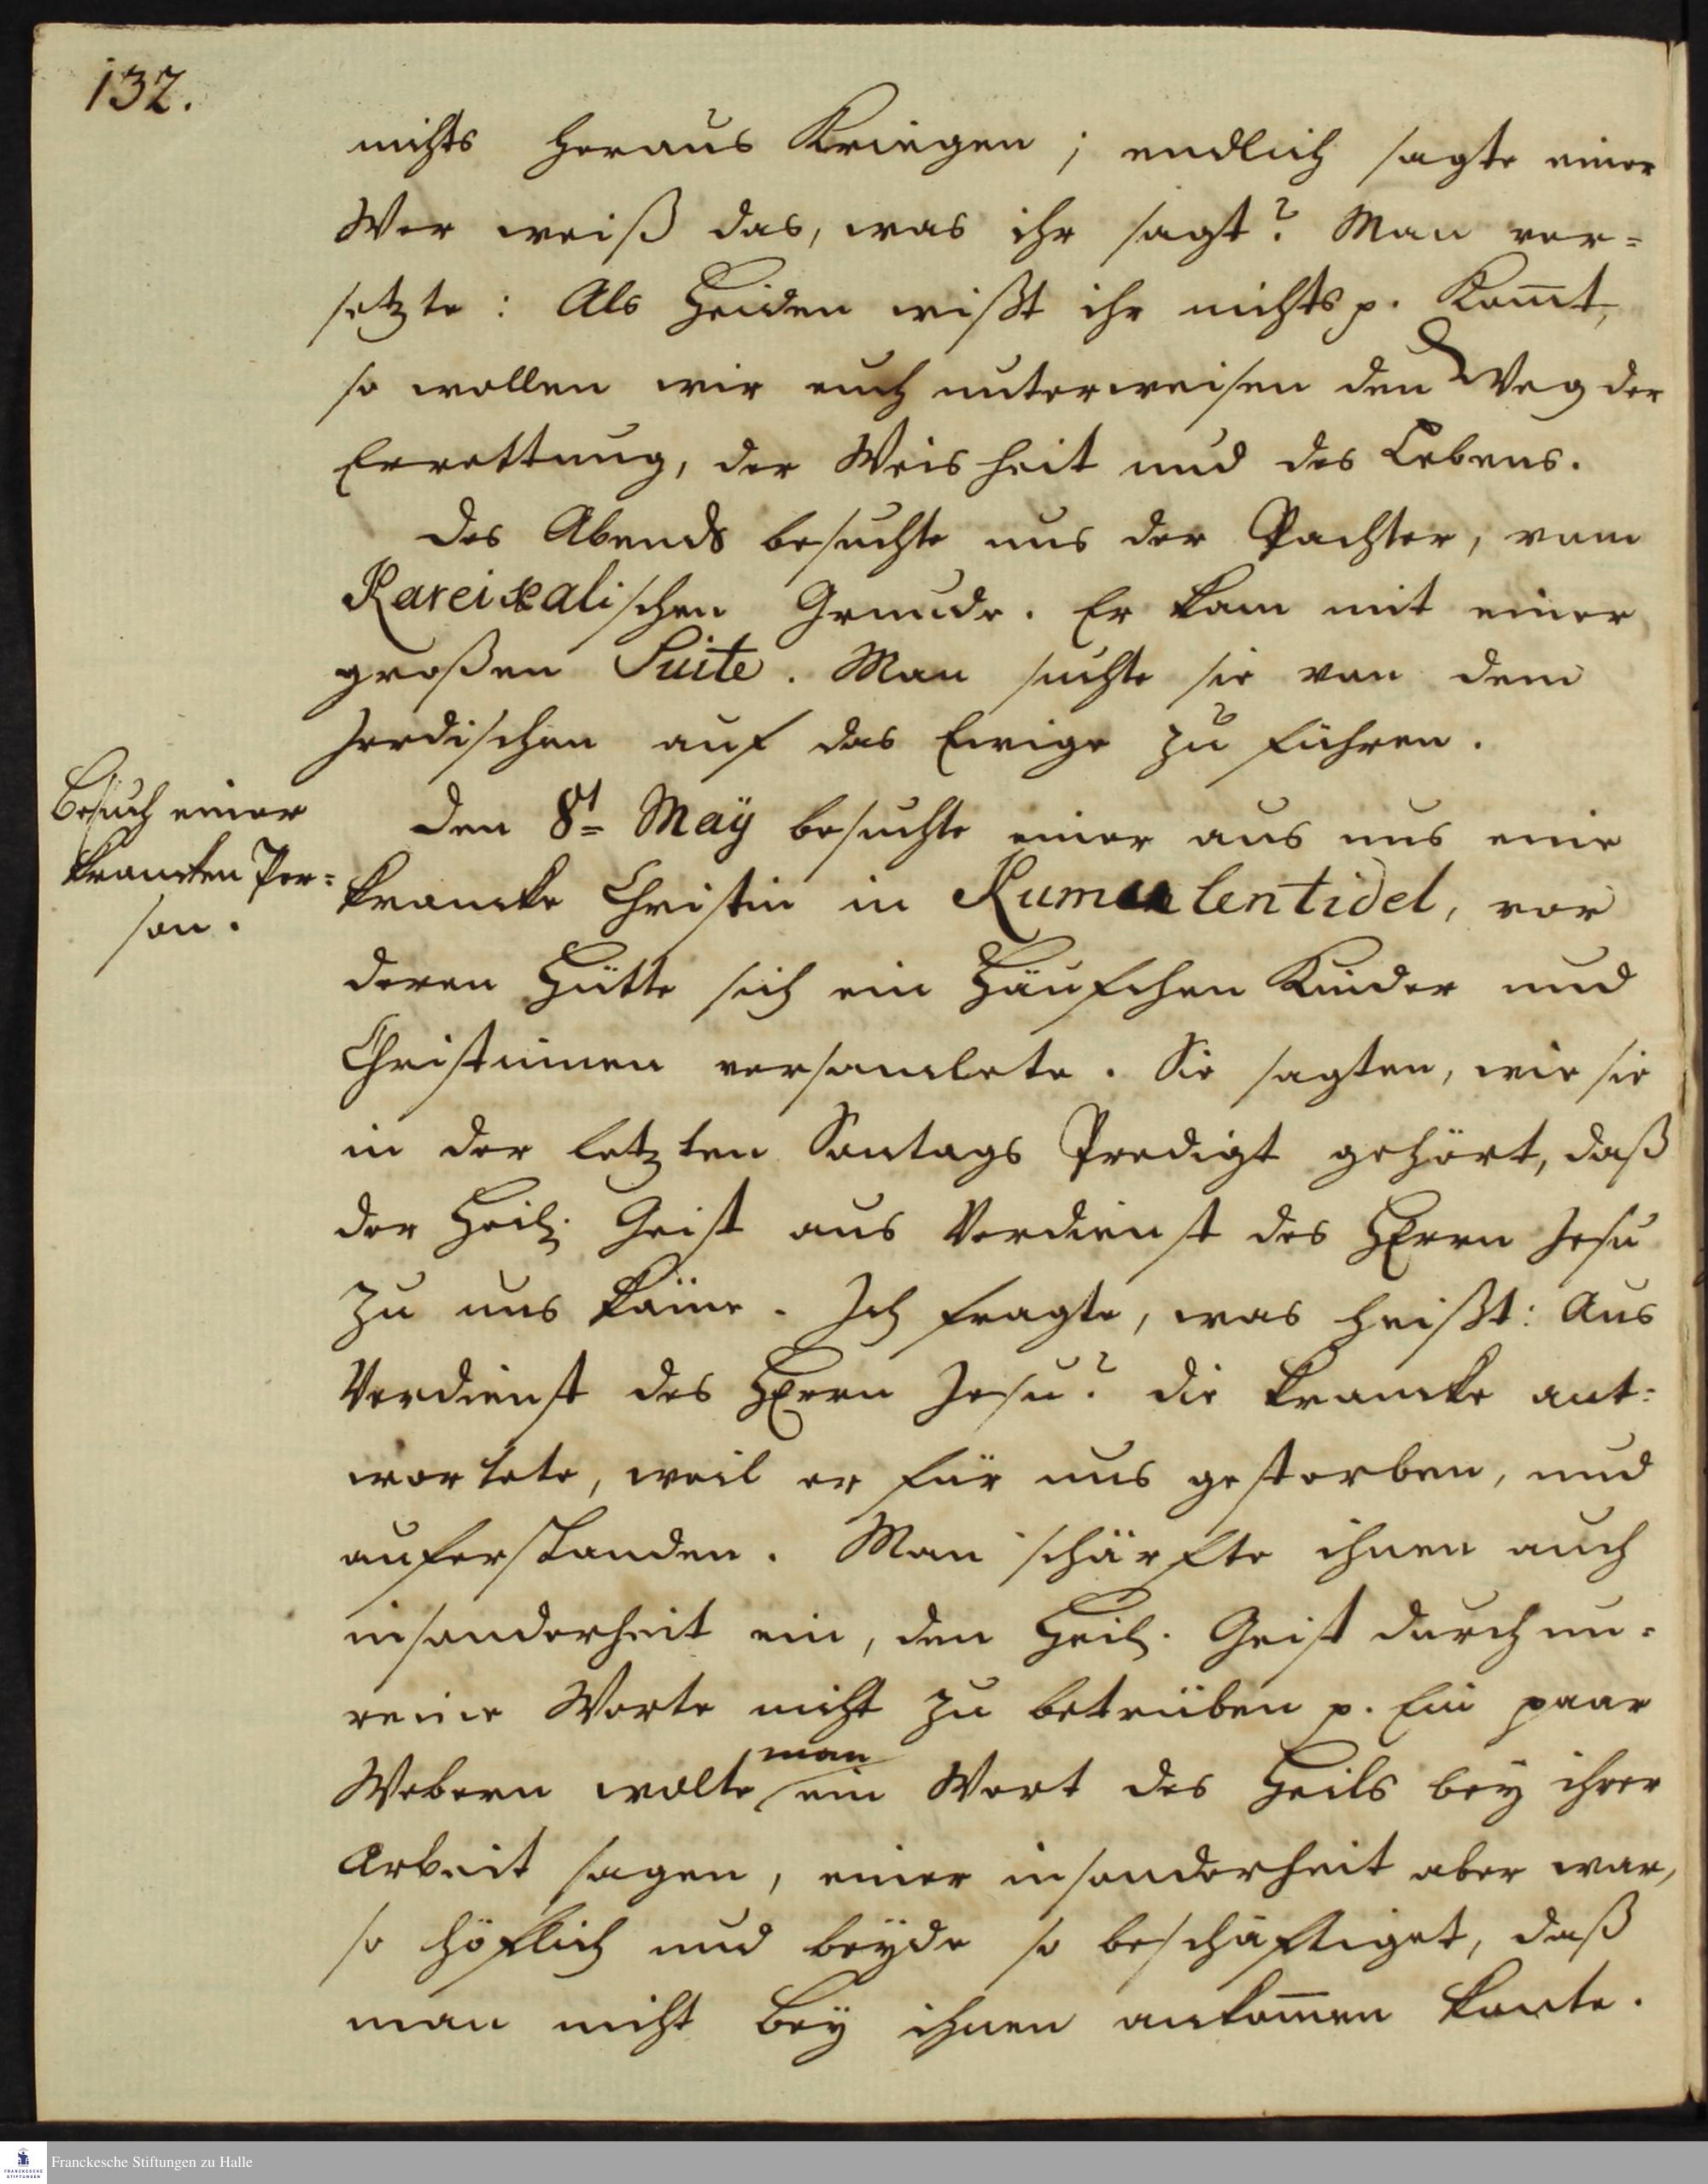 132.
nichts heraus Kriegen; endlich sagte einer
Wer weiß das, was ihr sagt? Man ver=
setzte: Als Heiden wißt ihr nichts p. Kom̄t,
so wollen wir euch unterweisen den Weg der
Errettung, der Weisheit und des Lebens.
Des Abends besuchte uns der Pachter, vom
Kareikalischen Grunde. Er kam mit einer
großen Suite. Man suchte sie von dem
Irrdischen auf das Ewige zu führen.
Besuch einer
krancken Per=
son.
Den 8t May besuchte einer aus uns eine
krancke Christin in Rumentidel, vor
deren Hütte sich ein Häufchen Kinder und
Christinnen versamlete. Sie sagten, wie sie
in der letzten Sontags Predigt gehört, daß
der Heil. Geist aus Verdienst des HErrn Jesu
zu uns käme. Ich fragte, was heißt: Aus
Verdienst des HErrn Jesu? Die krancke ant=
wortete, weil er für uns gestorben, und
auferstanden. Man schärfte ihnen auch
insonderheit ein, den Heil. Geist durch un=
reine Worte nicht zu betrüben p. Ein paar
Webern wolte man ein Wort des Heils bey ihrer
Arbeit sagen, einer insonderheit aber war,
so höflich und beyde so beschäftiget, daß
man nicht bey ihnen ankom̄en konte.
Franckesche Stiftungen zu Halle
FRANCKESCHE
STIFTUNGEN